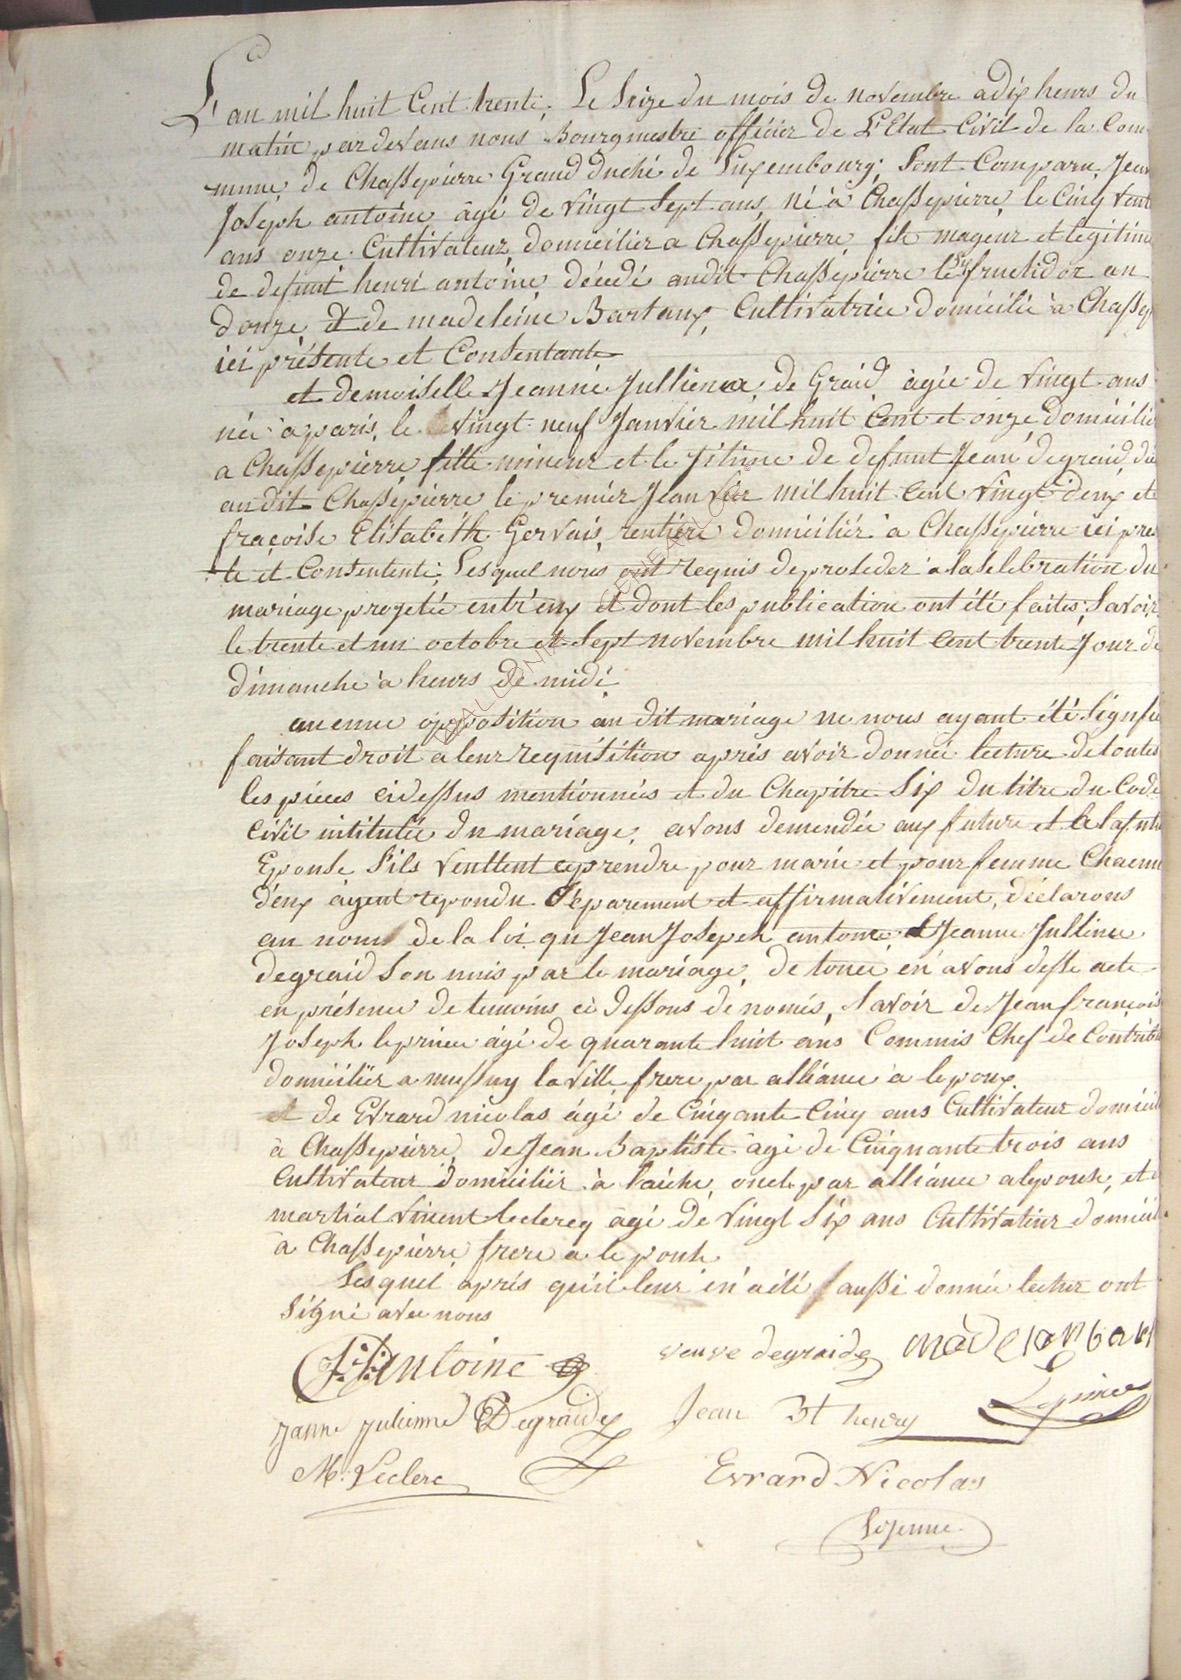 L'an mil huit Cent trente, Le Seize du mois de novembre a dix heurs du
matin par devans nous Bourgmestre officier de L'Etat Civil de la Com
mune de Chassepierre Grand Duché de Luxembourg, Sont Comparu, Jean
Joseph antoine âgé de Vingt Sept ans, Né à Chassepierre, le Cinq Vent
ans onze Cultivateur, domicilier a Chassepierre, fils mageur et legitime
de defunt henri antoine, décédé audit Chassepierre le fructidor an
douze et de madeleine Bartaux, Cultivatrice domicilié à Chassep
ici présente et Consentante
et demoiselle Jeanne Jullienne, de Graid, âgée de Vingt ans
née a paris, le Vingt neuf Janvier mil huit Cent et onze domicilie
a Chassepierre fille mineur et le jitime de defunt Jean degraid, dé
audit Chassepierre le premier Janvier mil huit Cent vingt deux et
fraçoise Elisabeth Gervais, rentière domiciliér à Chassepierre ici pres
te et Consentente, Lesquel nous ont requis de proseder a la Selebration du
mariage projetée entr'eux et dont les publication ont été faites, Savoir
le trente et un octobre et Sept novembre mil huit Cent trente Jour de
dimanche à heurs de midi
aucune opposition au dit mariage ne nous ayant été Signfie
faisant droit a leur requisition après avoir donnée lecture de toutes
les pieces cidessus mentionnées et du Chapitre Six du titre du Code
Civil intitulée du mariage, avons demendée aux future et a la futu
Epouse S'ils veullent prendre pour marie et pour femme Chacun
d'eux àyent repondu Séparement et affirmativement, déclarons
au noms de la loi que Jean Joseph antoine et Jeanne Jullinne
degraid Son unis par le mariage, de toue en avons dessé acte
en présence de temoins ci dessous dénomés, Savoir de Jean françois
Joseph leprince âgé de quarante huit ans Commis Chef de Contribu
domiciliér a mussuy la ville, frere par alliance a lepoux
et de Evrard nicolas âgé de Cinqante Cinq ans Cultivateur domicil
à Chassepierre, de Jean Baptiste âgé de Cinquante trois ans
Cultivateur domicilier à laiche, oncle par alliance a lepouse, et
martial Vincent leclercq âgé de Vingt Six ans Cultivateur domicil
à Chassepierre, frere a le pouse
Lesquel après qu'il leur en a été aussi donnée lectur ont
Signé avec nous
J:J: Antoine veuve degraide madelan bart
Janne Julienne Degraide Jean Bt henry Leprince
M. Leclerc Evrard Nicolas
Lejeune